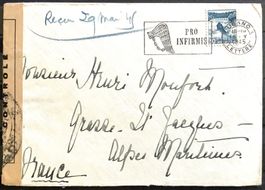 Reçu 29 mai 45
PRO
INFIRMIS
LUGANO 1
LETTERE
CONTROLE
Monsieur Henri Monfort
Grasse. St Jacques
Alpes Maritimes
France